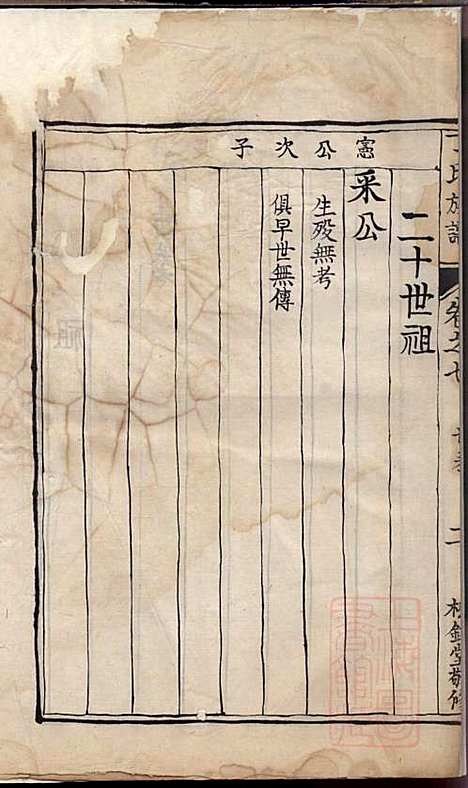 丁氏族譜
卷之七
世考
二
二十世祖
憲公次子
采公
生殁無考
俱早世無傳